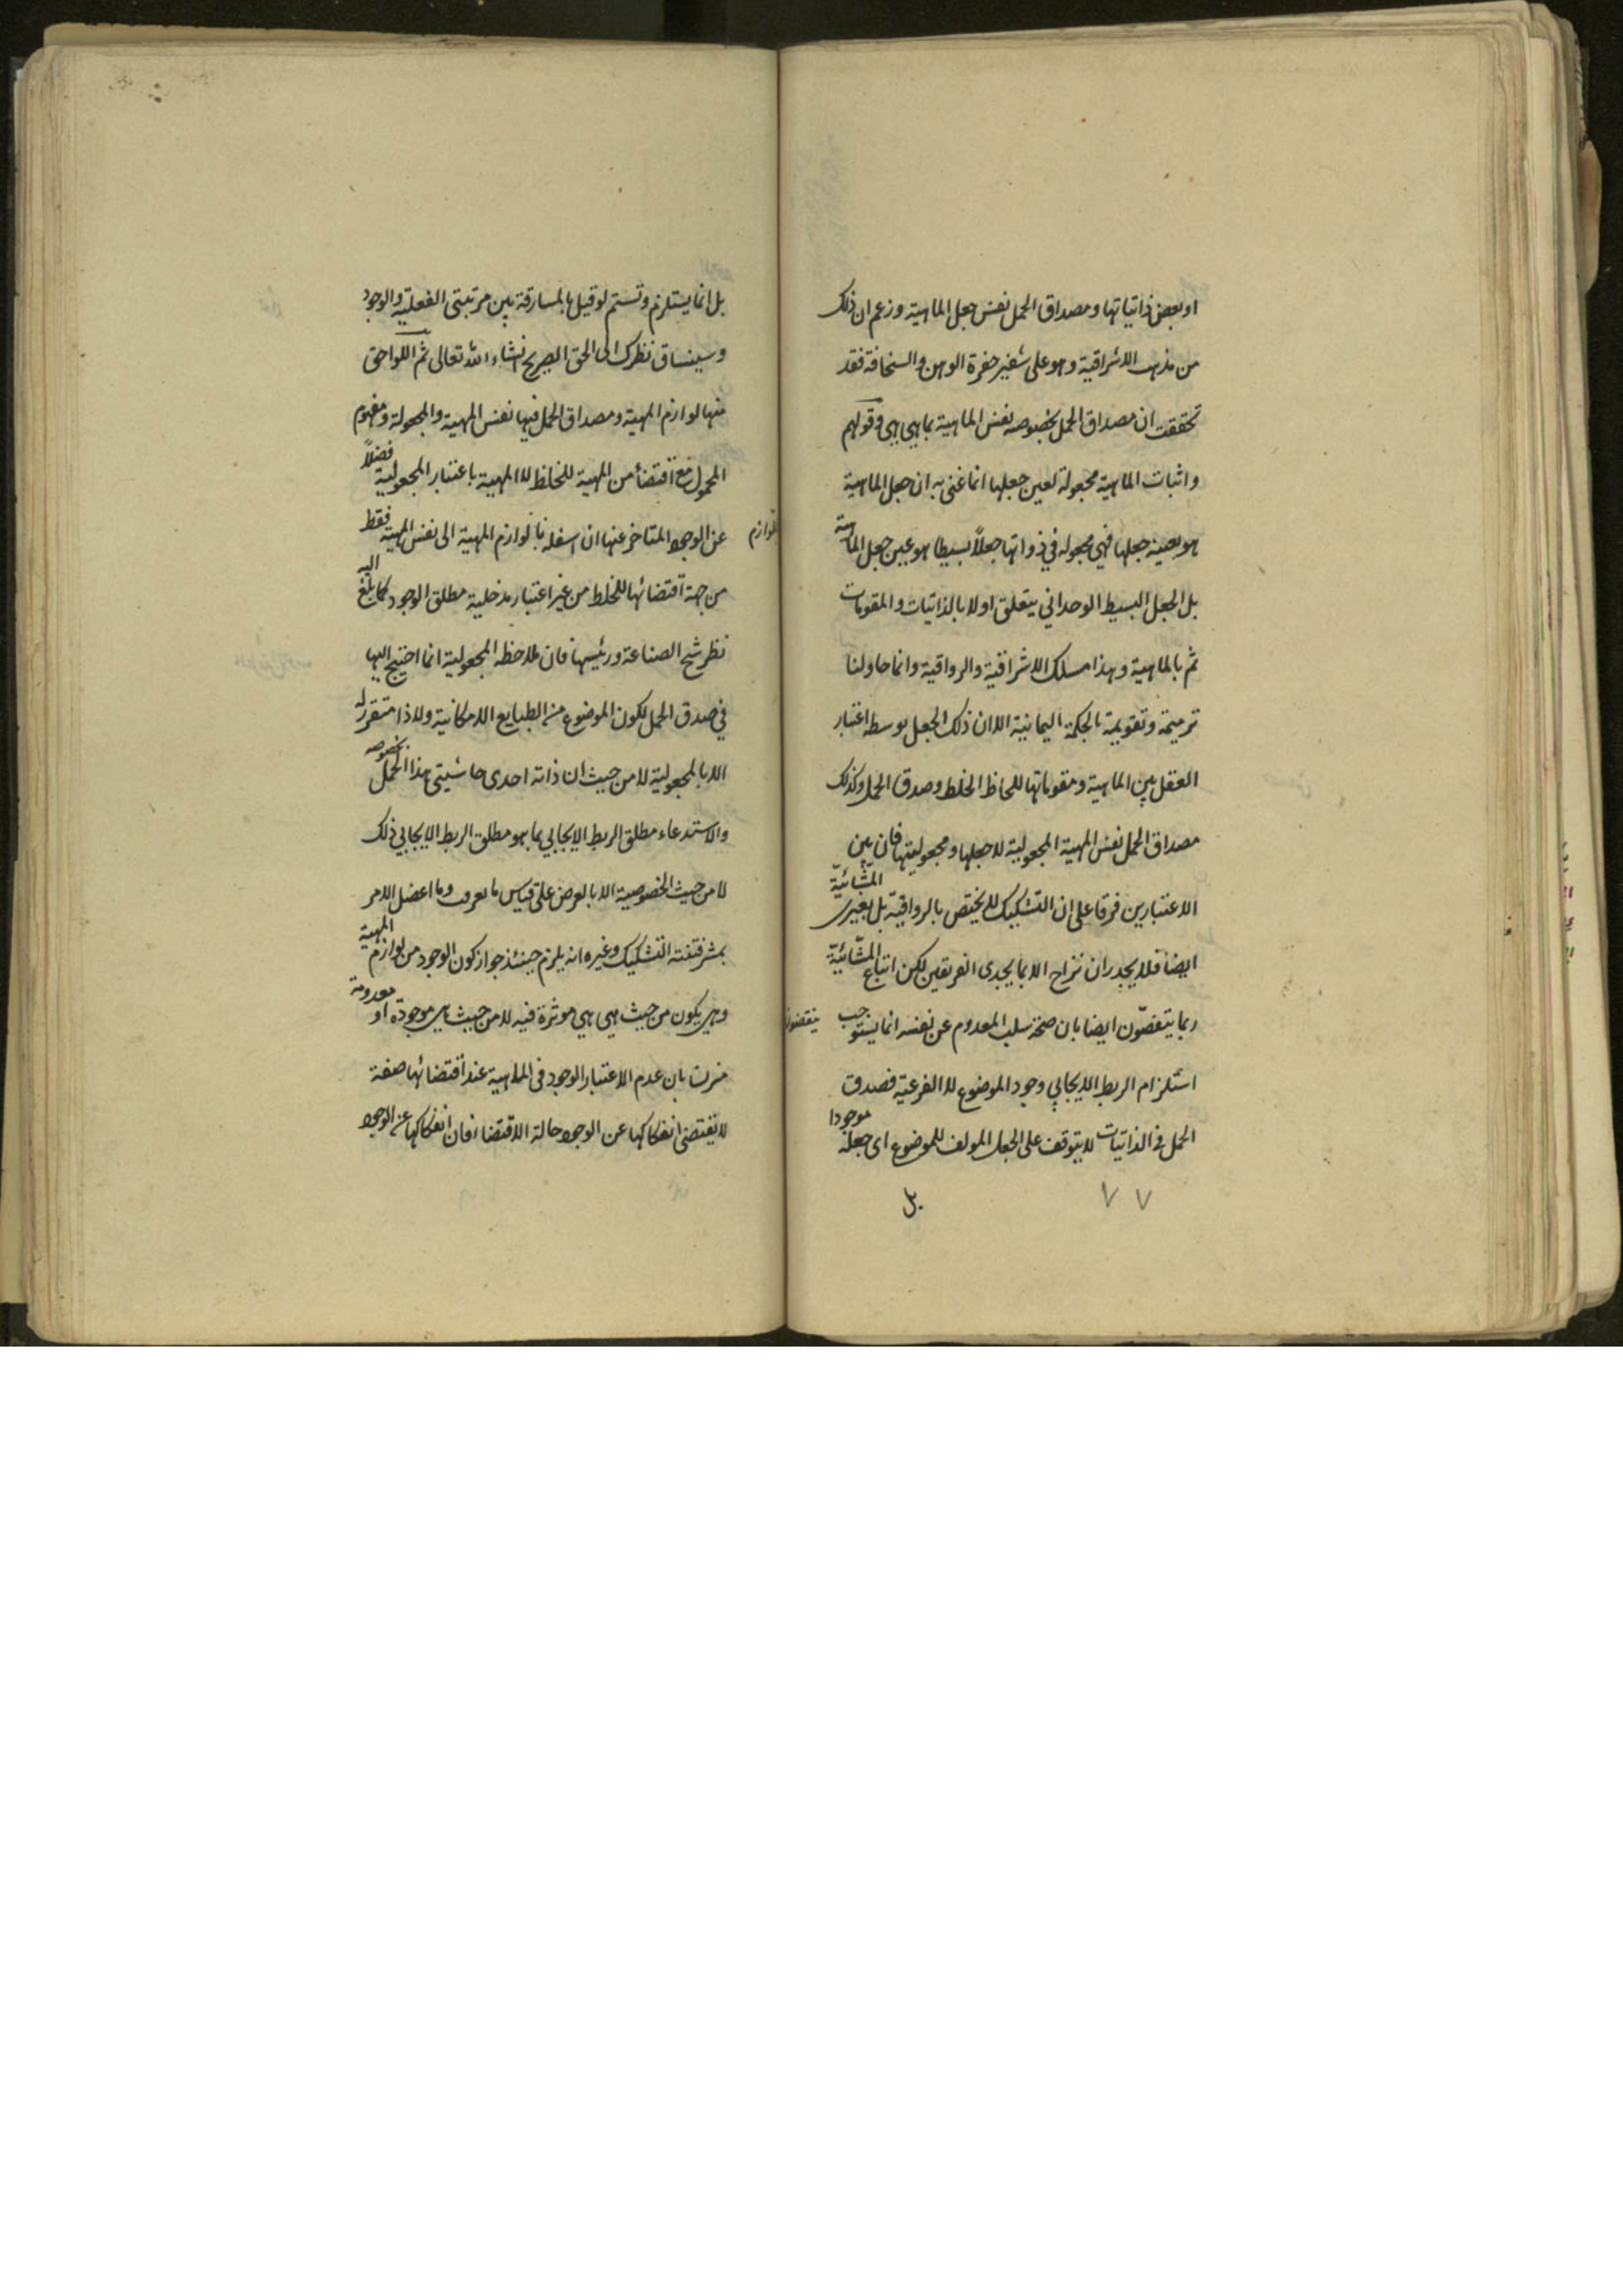 او بعض ذاتياتها ومصداق الحمل نفس جعل الماهية وزعم ان ذلك
من مذهب الاشراقية وهو على شفير حفرة الوهن والسخافة فقد
تحققت ان مصداق الحمل بخصوصه نفس الماهية بما هي هي وقولهم
واثبات الماهية مجعولة لعين جعلها انما غنى به ان جعل الماهية
هو بعينه جعلها فهي مجعولة في ذواتها جعلاً بسيطا هو عين جعل الماهية
بل الجعل البسيط الوحداني يتعلق اولا بالذاتيات والمقومات
ثم بالماهية وهذا مسلك الاشراقية والرواقية وانما حاولنا
ترميمه وتقويمه بالحكمة اليمانية الا ان ذلك الجعل يوسطه اعتبار
العقل بين الماهية ومقوماتها للحاظ الخلط وصدق الحمل وكذلك
مصداق الحمل نفس المهية المجعولية لا جعلها ومجعوليتها فان بين
الاعتبارين فرقا على ان التشكيك لا يختص بالرواقية بل يعيرى المشائية
ايضا فلا يجدر ان نزاح الا بما يجدى الفريقين لكن اتباع المشائية
ربما يتفصون ايضا بان صحة سلب المعدوم عن نفسه انما يستوجب
استلزام الربط الايجابي وجود الموضوع لا الفرعية فصدق
الحمل في الذاتيات لا يتوقف على الجعل المولف للموضوع اى جعله موجودا
بل
٧٧
بل انما يستلزم وتستم لو قيل بالمسارقة بين مرتبتى الفعلية والوجود
وسينساق نظرك الى الحق الصريح انشاء الله تعالى ثم اللواحق
منها لوازم المهية ومصداق الحمل فيها نفس المهية والمجعولة ومفهوم
المحمول مع اقتضاء من المهية للخلط لا المهية باعتبار المجعولية فضلاً
عن الوجود المتاخر عنها ان اسفله بالوازم المهية الى نفس المهية فقط
لوازم
من جهة اقتضائها للخلط من غير اعتبار مدخلية مطلق الوجود كما بلغ اليه
نظر شيخ الصناعة ورئيسها فان ملاحظة المجعولية انما احتيج اليها
في صدق الحمل لكون الموضوع من الطبايع الامكانية ولا ذا متقررة
الا بالمجعولية لا من حيث ان ذاته احدى حاشيتى هذا الحمل بخصوصه
والاستدعاء مطلق الربط الايجابي بما هو مطلق الربط الايجابي ذلك
لا من حيث الخصوصية الا بالعرض على قياس ما تعرف وما اعضل الامر
فتنة التشكيك وغيره انه يلزم حينئذ جواز كون الوجود من لوازم المهية
وهي يكون من حيث هي هي موثرة فيه لا من حيث هي موجودة او معدومة
بان عدم الاعتبار الوجود في الماهية عند اقتضائها صفة
لا يقتضى انفكاكها عن الوجود حالة الاقتضاء فان انفكاكها عن الوجود